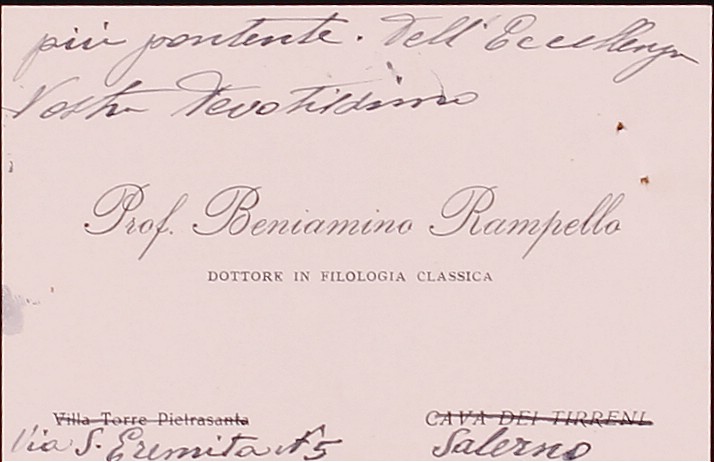 più pontente. Dell'Eccellenza
Vostra Devotissimo
Prof. Beniamino Rampello
DOTTORE IN FILOLOGIA CLASSICA
Villa Torre Pietrasanta CAVA DEI TIRRENI
Via S. Eremita N 5 Salerno